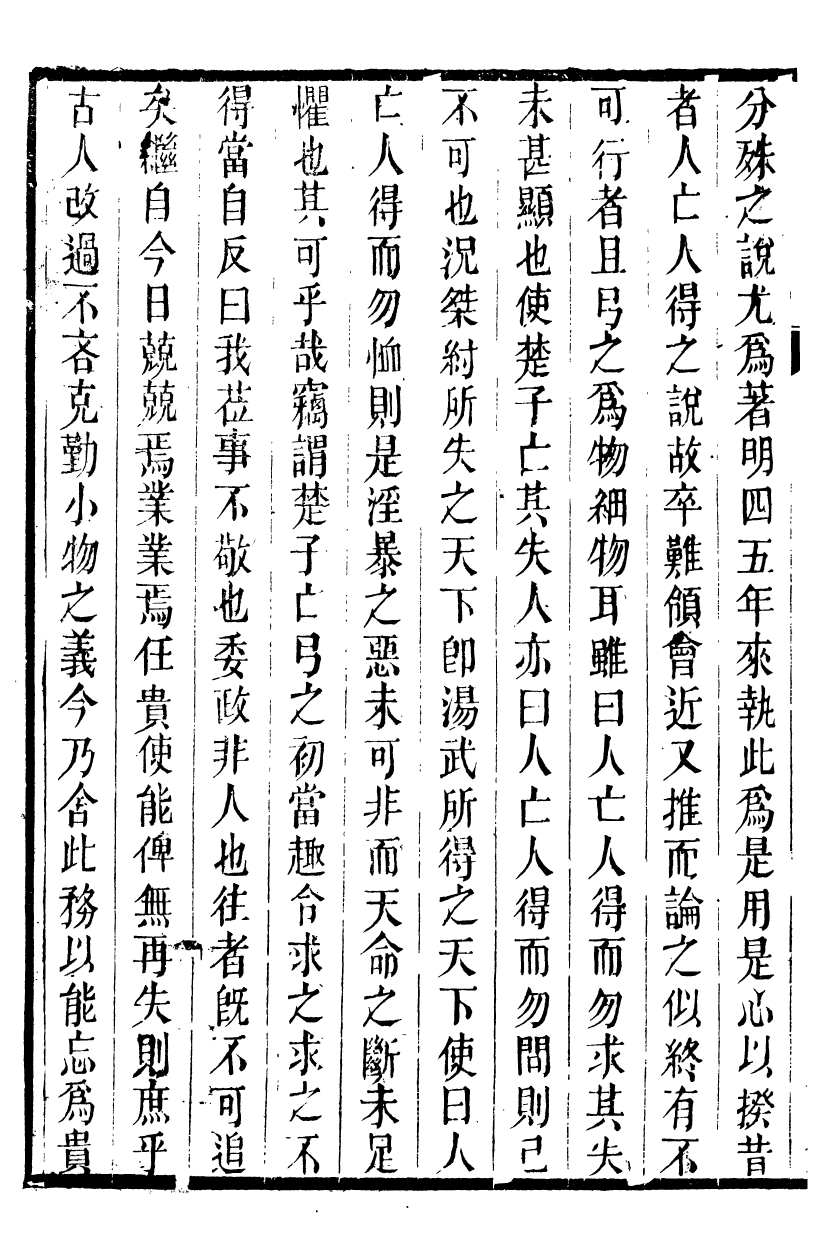 分殊之說尤爲著明四五年來執此爲是用是心以揆昔
者人亡人得之說故卒難領會近又推而論之似終有不
可行者且弓之爲物細物耳雖曰人亡人得而勿求其失
未甚顯也使楚子亡其失人亦曰人亡人得而勿問則已
不可也況桀紂所失之天下卽湯武所得之天下使曰人
亡人得而勿恤則是淫暴之惡未可非而天命之斷未足
懼也其可乎哉竊謂楚子亡弓之初當趣令求之求之不
得當自反曰我莅事不敬也委政非人也往者旣不可追
矣繼自今日兢兢焉業業焉任貴使能俾無再失則庶乎
古人改過不吝克勤小物之義今乃舍此務以能忘爲貴